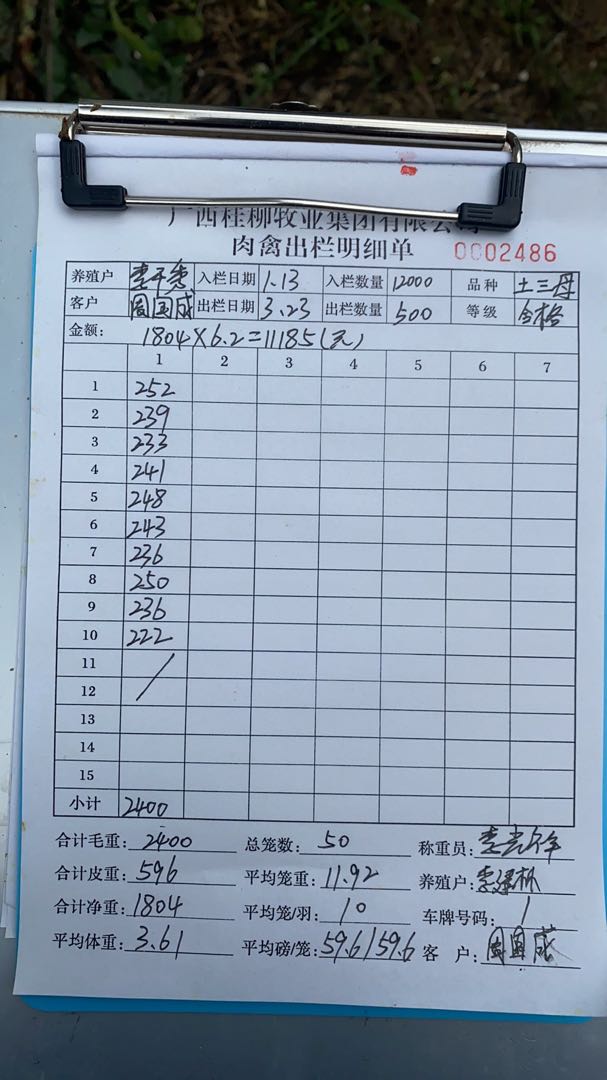 广西桂柳牧业集团有限公司
肉禽出栏明细单 0002486
养殖户 入栏日期 1.13 入栏数量 12000 品种 土三母
客户 周国成 出栏日期 3.23 出栏数量 500 等级 合格
金额: 1804×6.2=11185(元)
1 2 3 4 5 6 7
1 252
2 239
3 233
4 241
5 248
6 243
7 236
8 250
9 236
10 222
11
12
13
14
15
小计 2400
合计毛重: 2400 总笼数: 50 称重员:
合计皮重: 596 平均笼重: 11.92 养殖户:
合计净重: 1804 平均笼/羽: 10 车牌号码: /
平均体重: 3.61 平均磅/笼: 59.6/59.6 客 户: 周国成